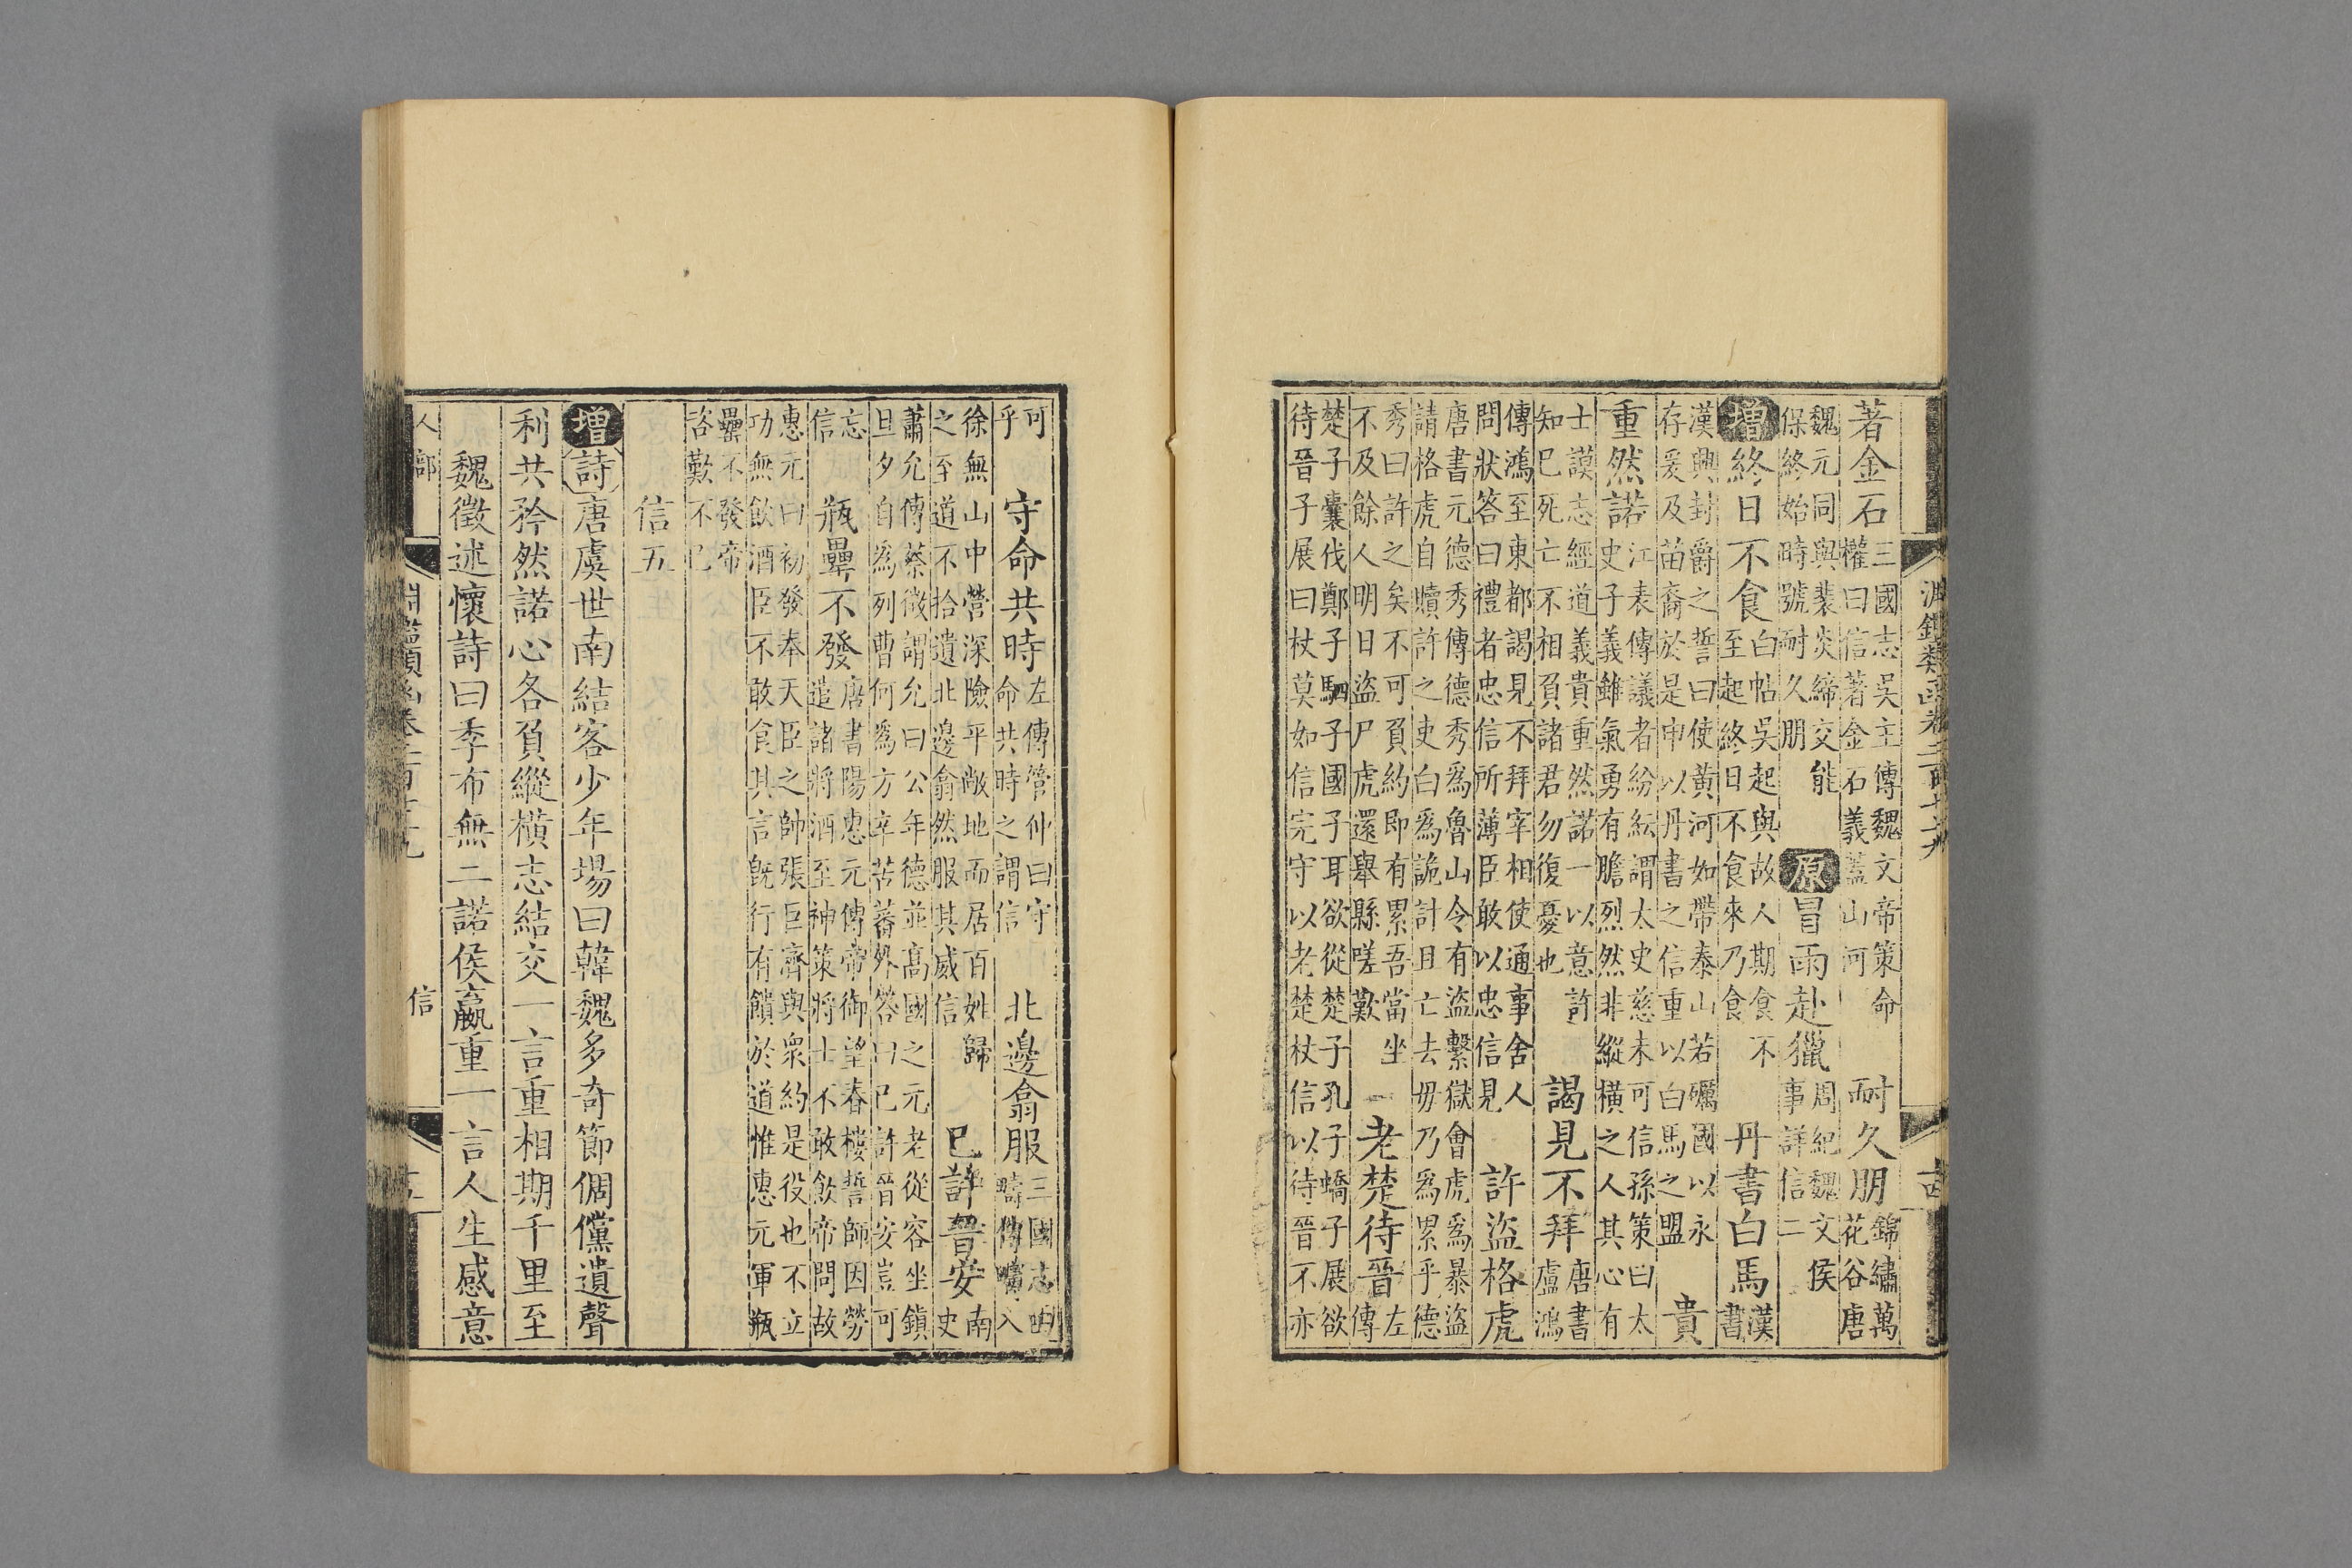 淵鑑類函卷二百七十九
著金石三國志吳主傳魏文帝策命權曰信著金石義蓋山河 耐久朋錦繡萬花谷唐
魏元同與裴炎締交能保終始時號耐久朋 原冒雨赴獵周紀魏文侯事詳信二
增終日不食白帖吳起與故人期食不至起終日不食來乃食 丹書白馬漢書
漢興封爵之誓曰使黃河如帶泰山若礪國以永存爰及苗裔於是申以丹書之信重以白馬之盟 貴
重然諾江表傳議者紛紜謂太史慈未可信孫策曰太史子義雖氣勇有膽烈然非縱橫之人其心有
士謨志經道義貴重然諾一以意許知已死亡不相負諸君勿復憂也 謁見不拜唐書盧鴻
傳鴻至東都謁見不拜宰相使通事舍人問狀答曰禮者忠信所薄臣敢以忠信見 許盜格虎
唐書元德秀傳德秀爲魯山令有盜繫獄會虎爲暴盜請格虎自贖許之吏白爲詭計且亡去毋乃爲累乎德
秀曰許之矣不可負約即有累吾當坐不及餘人明日盜尸虎還舉縣嗟歎 老楚待晉左傳
楚子囊伐鄭子駟子國子耳欲從楚子孔子蟜子展欲待晉子展曰杖莫如信完守以老楚杖信以待晉不亦
可乎 守命共時左傳管仲曰守命共時之謂信 北邊翕服三國志田疇傳疇入
徐無山中營深險平敞地而居百姓歸之至道不拾遺北邊翕然服其威信 已許晉安南史
蕭允傳蔡徵謂允曰公年德並高國之元老從容坐鎮旦夕自爲列曹何爲方辛苦蕃外答曰已許晉安豈可
忘信 瓶罍不發唐書陽惠元傳帝御望春樓誓師因勞遣諸將酒至神策將士不敢飲帝問故
惠元曰初發奉天臣之帥張巨濟與衆約是役也不立功無飲酒臣不敢食其言旣行有饋於道惟惠元軍瓶
罍不發帝咨歎不已
信五
增詩唐虞世南結客少年場曰韓魏多奇節倜儻遺聲
利共矜然諾心各負縱橫志結交一言重相期千里至
魏徵述懷詩曰季布無二諾侯嬴重一言人生感意
人部 信